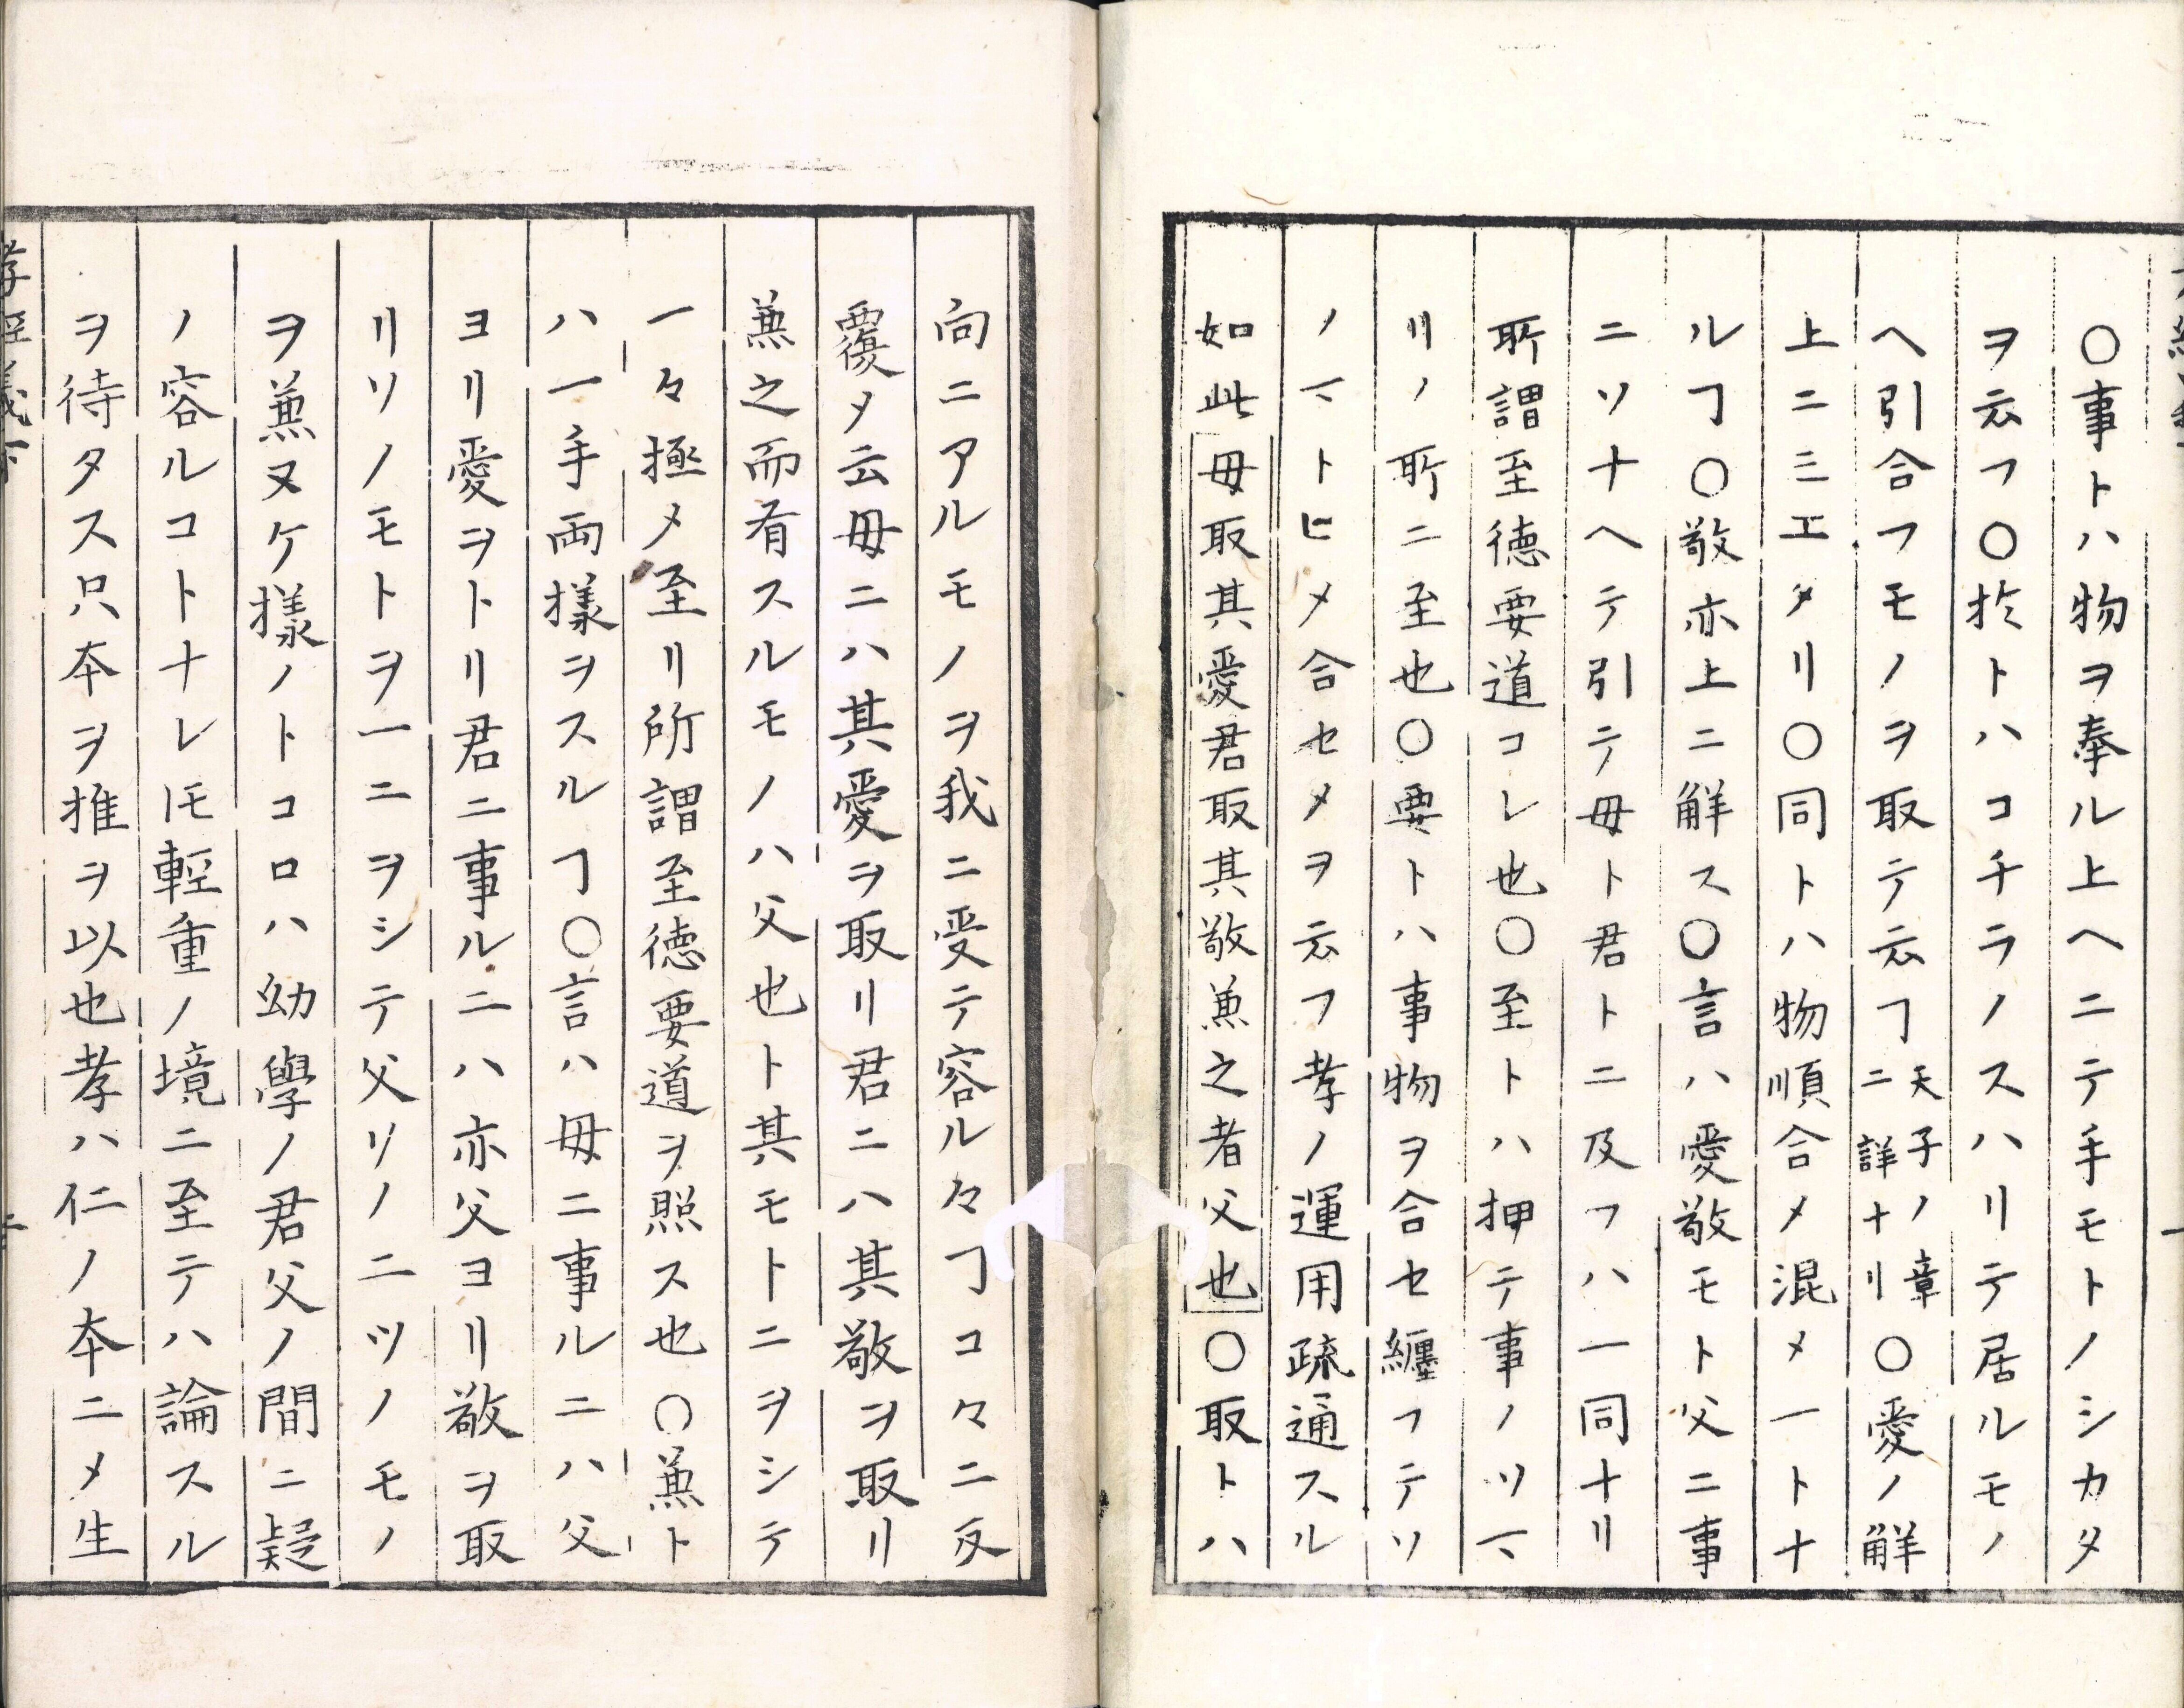 ○事トハ物ヲ奉ル上ヘニテ手モトノシカタ
ヲ云フ○扵トハコチラノスハリテ居ルモノ
ヘ引合フモノヲ取テ云ヿ天子ノ章ニ詳ナリ○愛ノ解
上ニミエタリ○同トハ物順合メ混メ一トナ
ルヿ○敬亦上ニ解ス○言ハ愛敬モト父ニ事
ニソナヘテ引テ母ト君トニ及フハ一同ナリ
所謂至徳要道コレ也○至トハ押テ事ノツマ
リノ所ニ至也○要トハ事物ヲ合セ纏フテソ
ノマトヒメ合セメヲ云フ孝ノ運用疏通スル
如此母取其愛君取其敬兼之者父也○取トハ
向ニアルモノヲ我ニ受テ容ル々ヿコヽニ反
覆メ云母ニハ其愛ヲ取リ君ニハ其敬ヲ取リ
兼之而有スルモノハ父也ト其モトニヲシテ
一々極メ至リ所謂至徳要道ヲ照ス也○兼ト
ハ一手両様ヲスルヿ○言ハ母ニ事ルニハ父
ヨリ愛ヲトリ君ニ事ルニハ亦父ヨリ敬ヲ取
リソノモトヲ一ニヲシテ父リノニツノモノ
ヲ兼ヌケ様ノトコロハ幼學ノ君父ノ間ニ疑
ノ容ルコトナレ𪜈輕重ノ境ニ至テハ論スル
ヲ待タス只本ヲ推ヲ以也孝ハ仁ノ本ニメ生
孝經義下